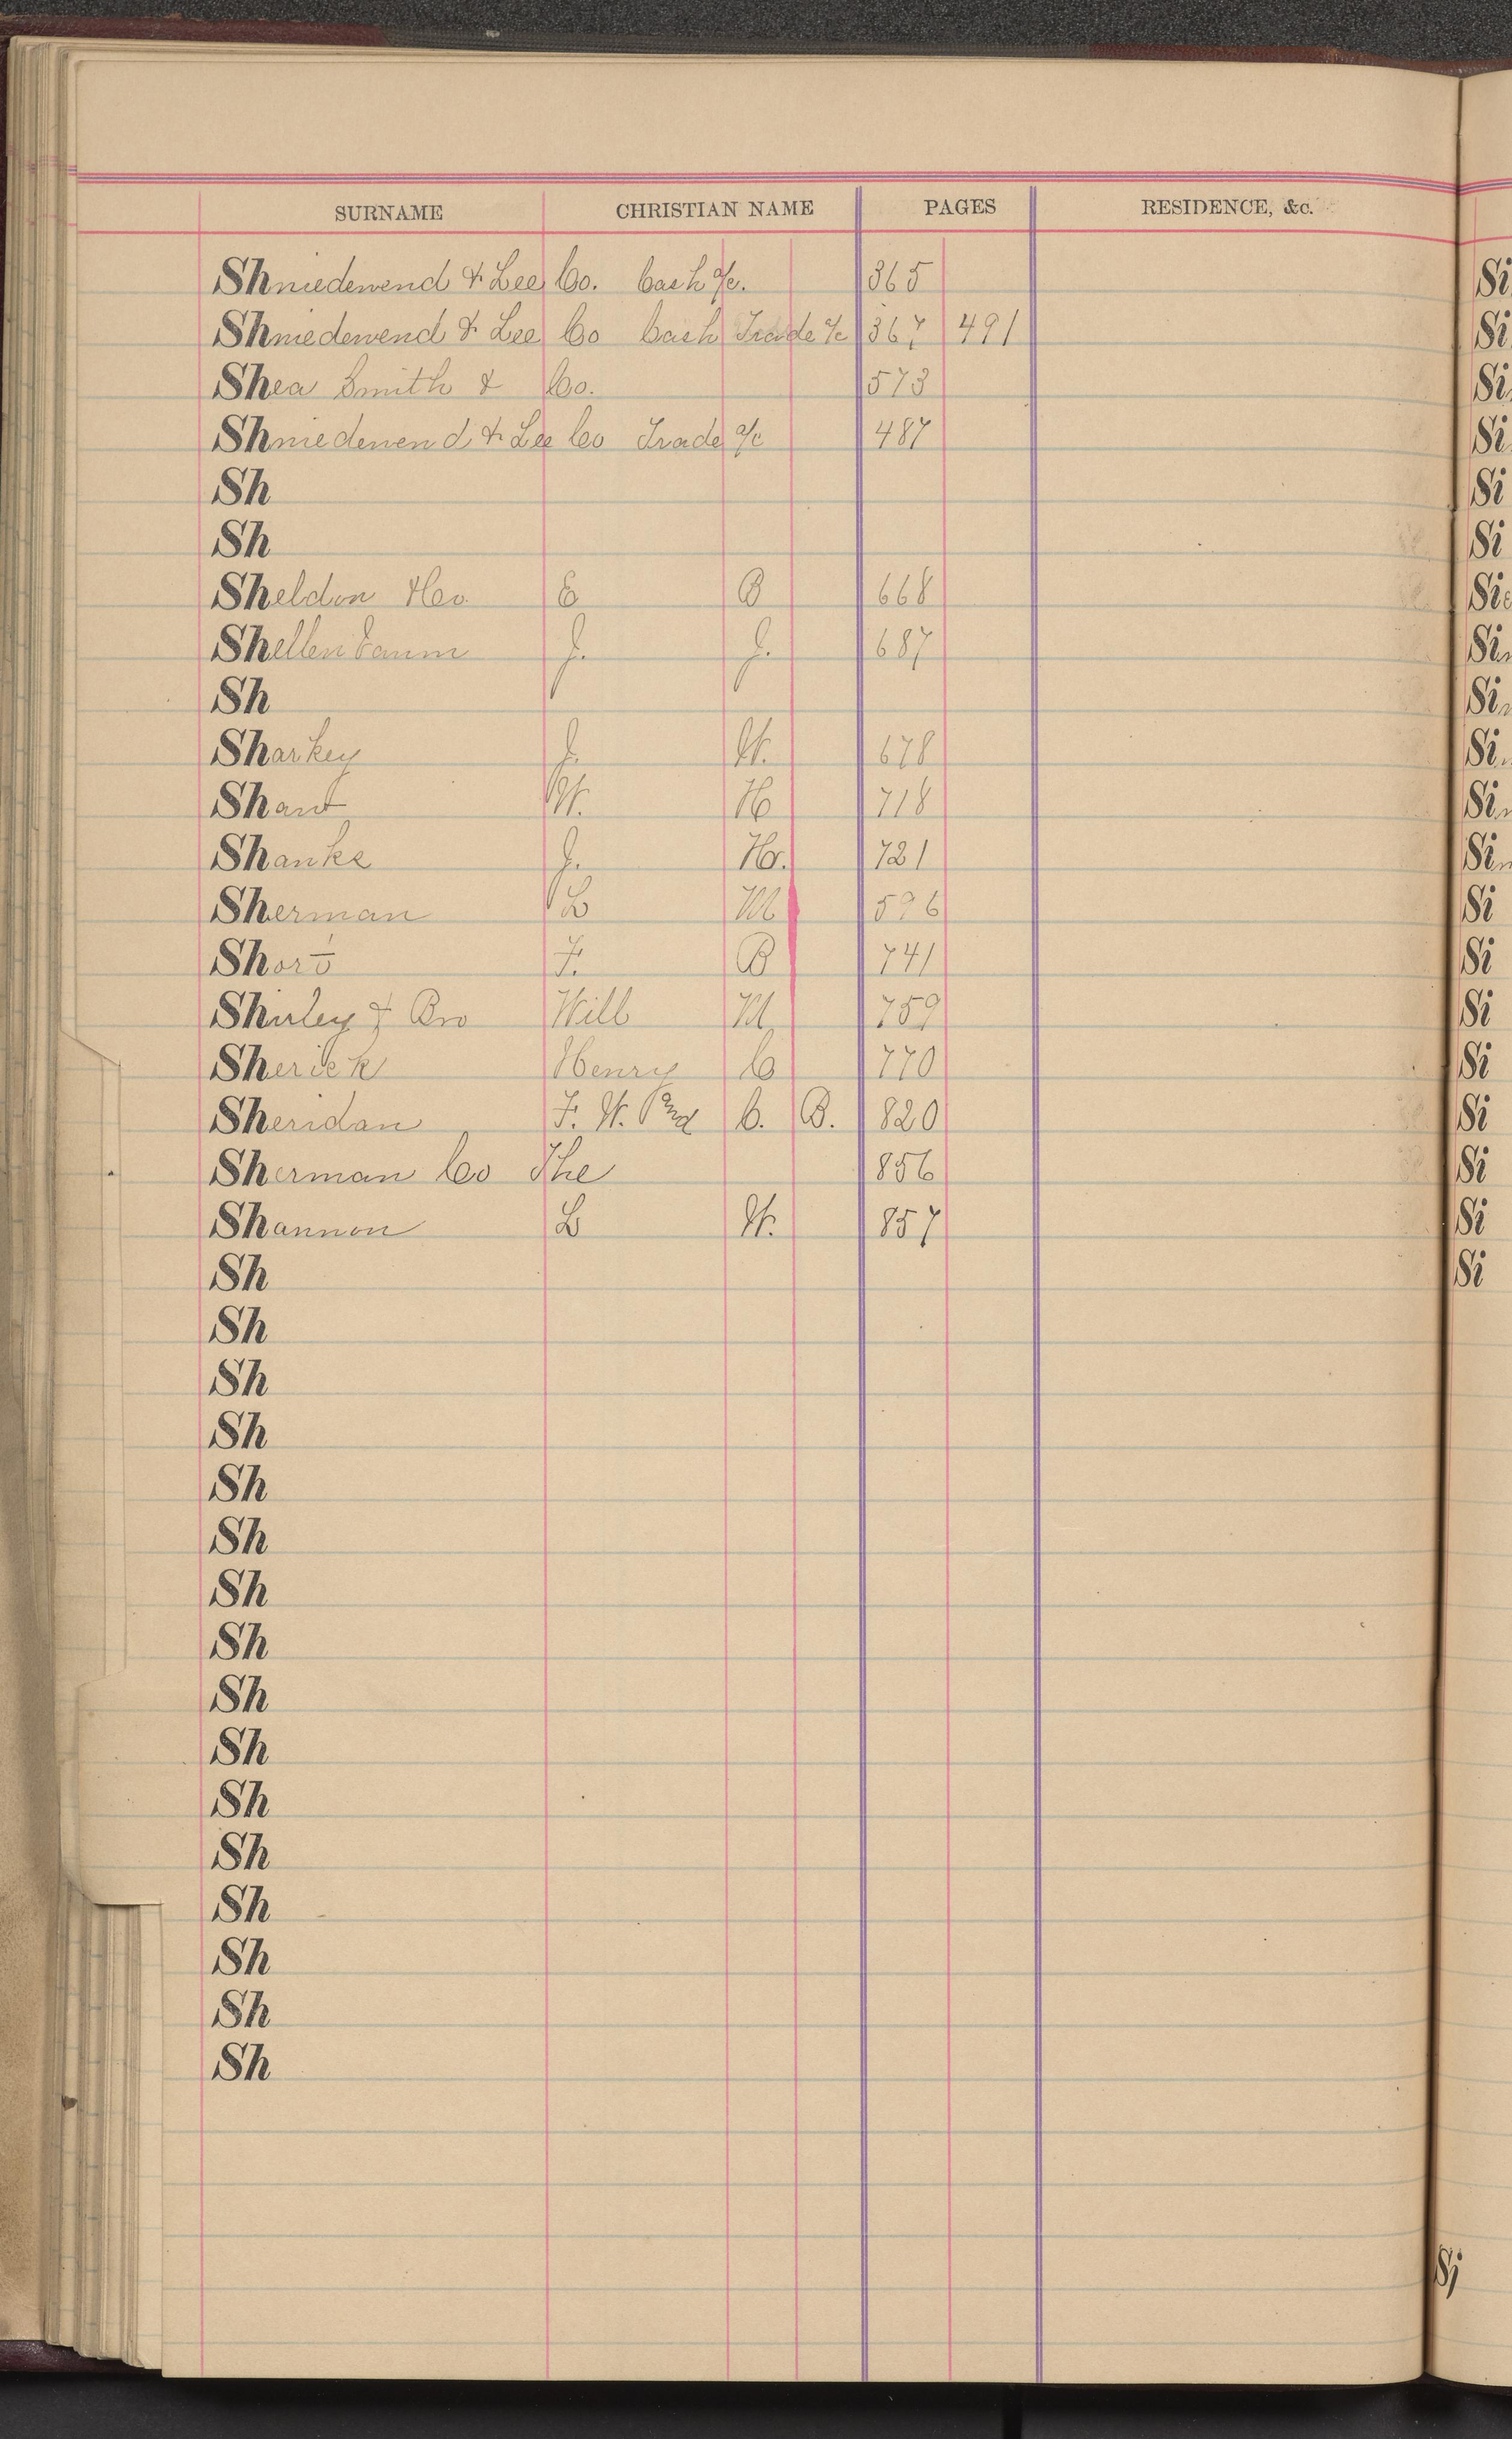 SURNAME CHRISTIAN NAME PAGES RESIDENCE, &c.
Shniedewend & Lee Co. Cash a/c. 365
Shniedewend & Lee Co Cash Trade a/c 367 491
Shea Smith & Co. 573
Shniedewend & Lee Co Trade a/c 487
Sh
Sh
Sheldon Rev. C B 668
Shellenbaum J. J. 687
Sh
Sharkey J. W. 678
Shaw W. H 718
Shanks J. H. 721
Sherman L M 596
Short F. B 741
Shirley & Bro Will M. 759
Sherick Henry C 770
Sheridan F. W. And C. B. 820
Sherman Co The 856
Shannon L W. 857
Sh
Sh
Sh
Sh
Sh
Sh
Sh
Sh
Sh
Sh
Sh
Sh
Sh
Sh
Sh
Sh
Si
Si
Si
Si
Si
Si
Si
Si
Si
Si
Si
Si
Si
Si
Si
Si
Si
Si
Si
Si
Sj